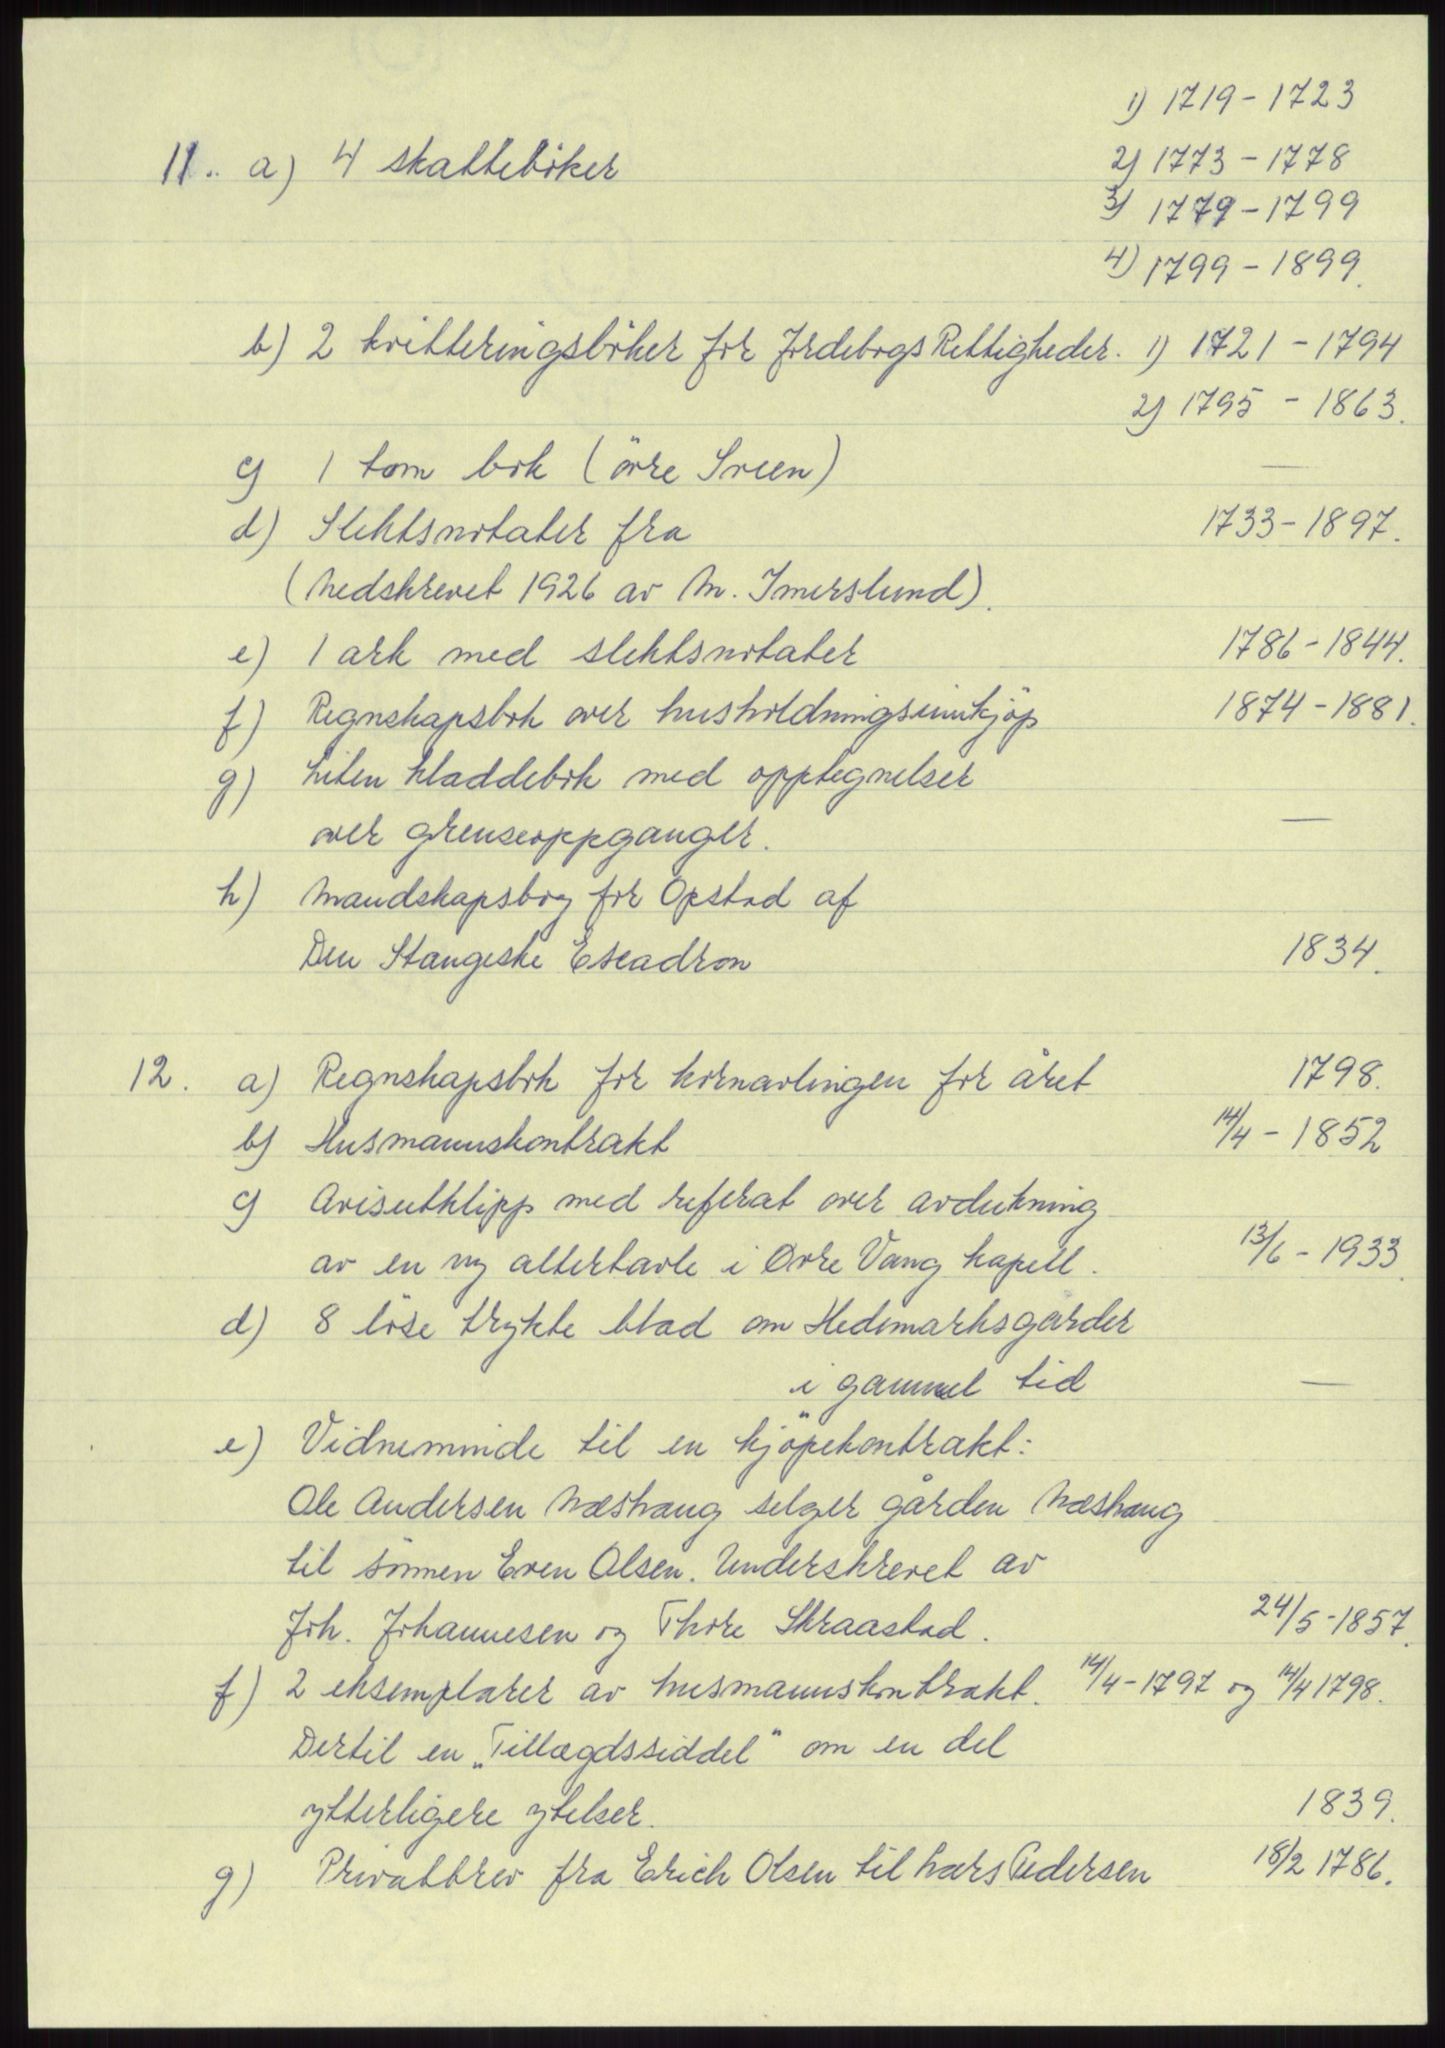 1) 1719 - 1723
11. a) 4 skatteböker 2) 1773 - 1778
3) 1779 - 1799
4) 1799 - 1899.
b) 2 kvitteringsböker for Jordebogs Rettigheder. 1) 1721 - 1794
2) 1795 - 1863.
c) 1 tom bok (övre Sveen) —
d) Slektsnotater fra 1733 - 1897.
(Nedskrevet 1926 av M. Imerslund).
e) 1 ark med slektsnotater 1786 - 1844.
f) Regnskapsbok over husholdningsinnkjöp 1874 - 1881.
g) Liten kladdebok med opptegnelser
over grenseoppganger. —
h) Mandskapsbog for Opstad af
Den Stangeske Escadron 1834.
12. a) Regnskapsbok for kornavlingen for året 1798.
b) Husmannskontrakt 14/4 - 1852
c) Avisutklipp med referat over avdukning
av en ny altertavle i Övre Vang kapell. 13/6 - 1933.
d) 8 löse trykte blad om Hedemarksgarder
i gammel tid —
e) Vidneminde til en kjöpekontrakt:
Ole Andersen Næshaug selger gården Næshaug
til sönnen Even Olsen. Underskrevet av
Joh. Johannesen og Thore Skraastad. 24/5 - 1857.
f) 2 eksemplarer av husmannskontrakt. 14/4 - 1797 og 14/4 1798.
Dertil en „Tillægdssiddel" om en del
ytterligere ytelser. 1839.
g) Privatbrev fra Erich Olsen til Lars Pedersen 18/2 1786.